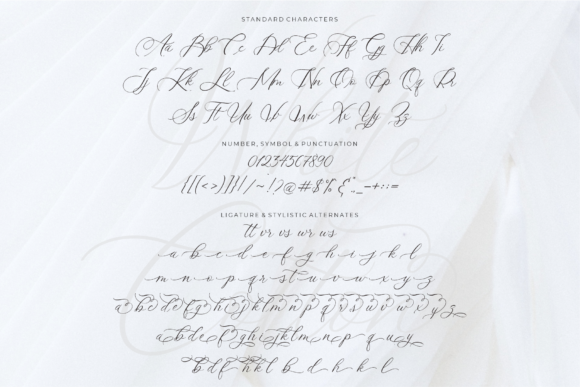 STANDARD CHARACTERS
Aa Bb Cc Dd Ee Ff Gg Hh Ii
Jj Kk Ll Mm Nn Oo Pp Qq Rr
Ss Tt Uu Vv Ww Xx Yy Zz
NUMBER, SYMBOL & PUNCTUATION
01234567890
{[(<>)]}!/~!?@#$%&*.,_-+::=
LIGATURE & STYLISTIC ALTERNATES
tt or vs wr us
a b c d e f g h i j k l
m n o p q r s t u v w x y z
a b c d e f g h i j k l m n o p q r s t u v w x y z
a b c d e f g h i j k l m n o p q u y
b d f h k l b d h k l
White